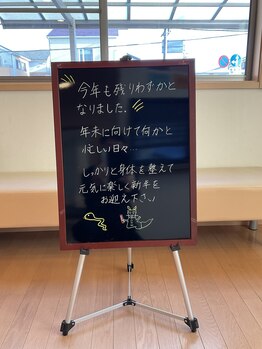 今年も残りわずかと
なりました。
年末に向けて何かと
忙しい日々…
しっかりと身体を整えて
元気に楽しく新年を
お迎え下さい